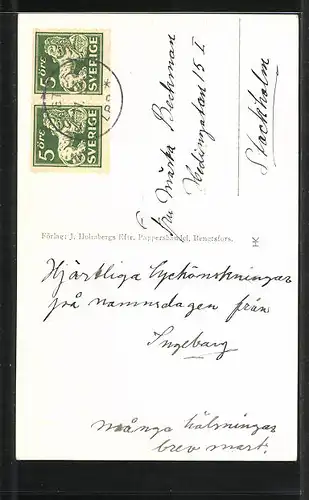 5 ÖRE
SVERIGE
5 ÖRE
SVERIGE
Märta Beckman
15 I
Stockholm
Förlag: J. Holmbergs Eftr. Pappershandel, Bengtsfors.
HK
Hjärtliga lyckönskningar
på namnsdagen från
Ingeborg
många hälsningar
brev snart.